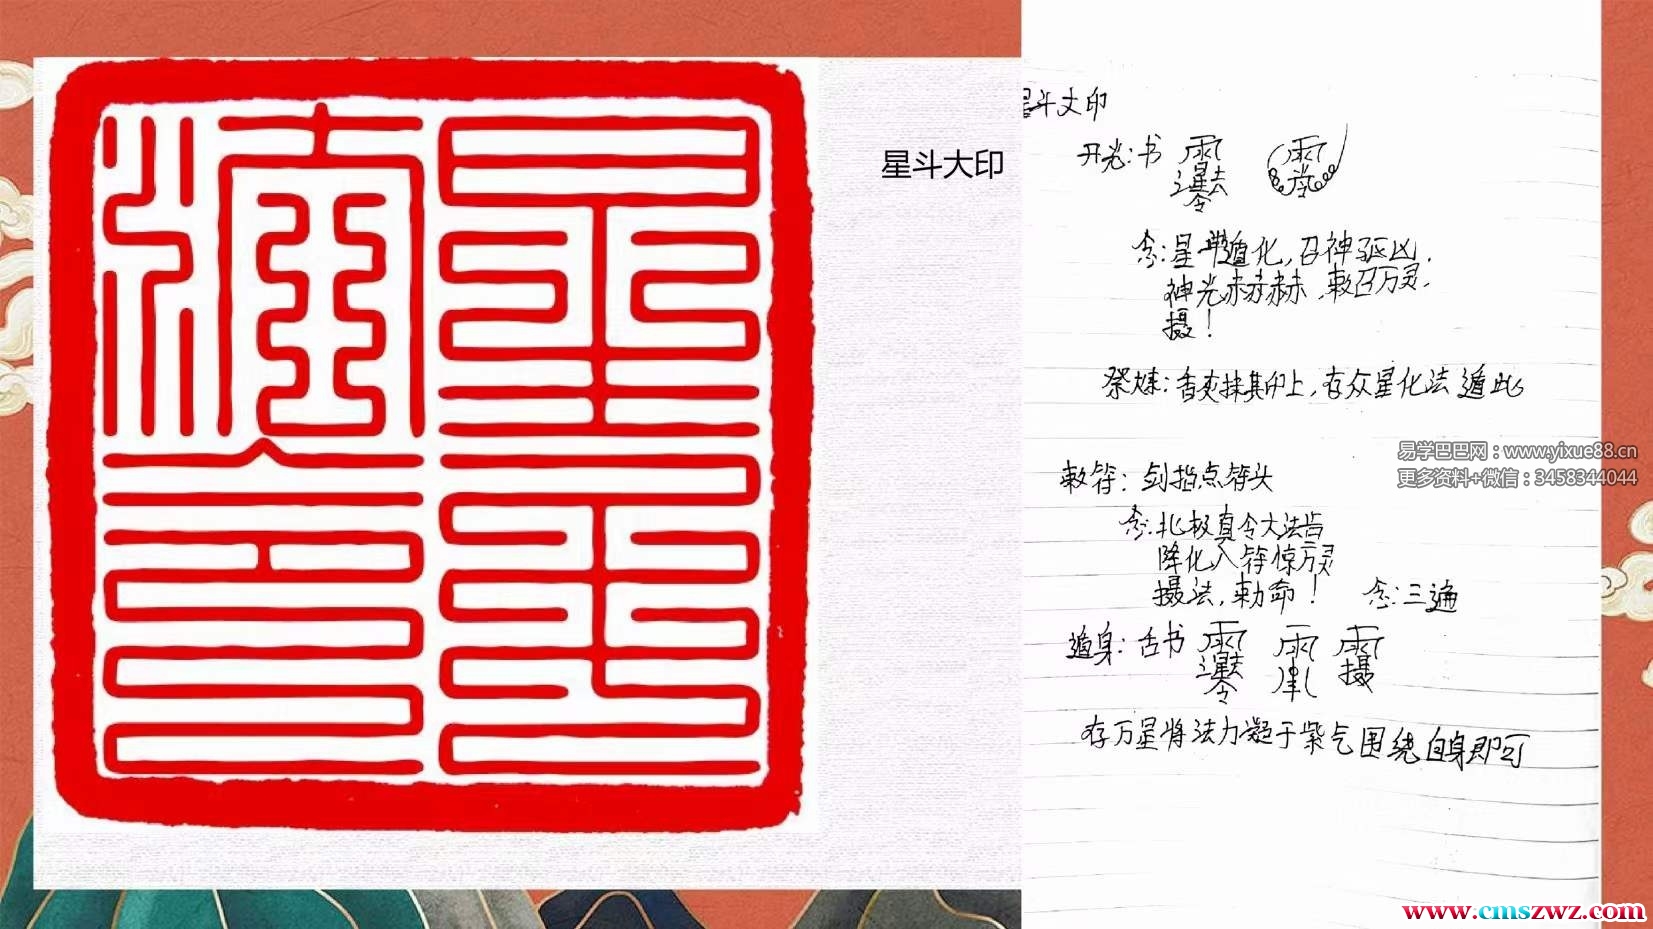 星斗大印
星斗大印
开光：书
念：星斗遁化，召神驱凶，
神光赫赫赫，敕召万灵，
摄！
祭炼：香灰抹其印上，存众星化法遁此
敕符：剑指点符头
念：北极真令大法旨
降化入符惊万灵
摄法，敕命！ 念：三遍
遁身：舌书
存万星将法力凝于紫气围绕自身即可
易学巴巴网：www.yixue88.cn
更多资料+微信：3458344044
www.cmszwz.com